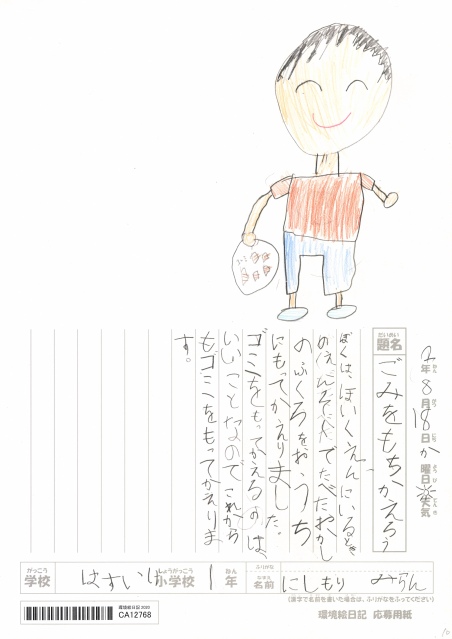 2年8月18日か曜日 天気
だいめい
題名
ごみをもちかえろう
ぼくは、ほいくえんにいるとき
のえんそくでたべたおかし
のふくろをおうち
にもってかえりました。
ゴミをもってかえるのは、
いいことなのでこれから
もゴミをもってかえりま
す。
がっこう
学校
しょうがっこう
小学校
1
ねん
年
ふりがな
なまえ
名前
にしもり
(漢字で名前を書いた場合は、ふりがなをふってください)
環境絵日記 応募用紙
環境絵日記2020
CA12768
10